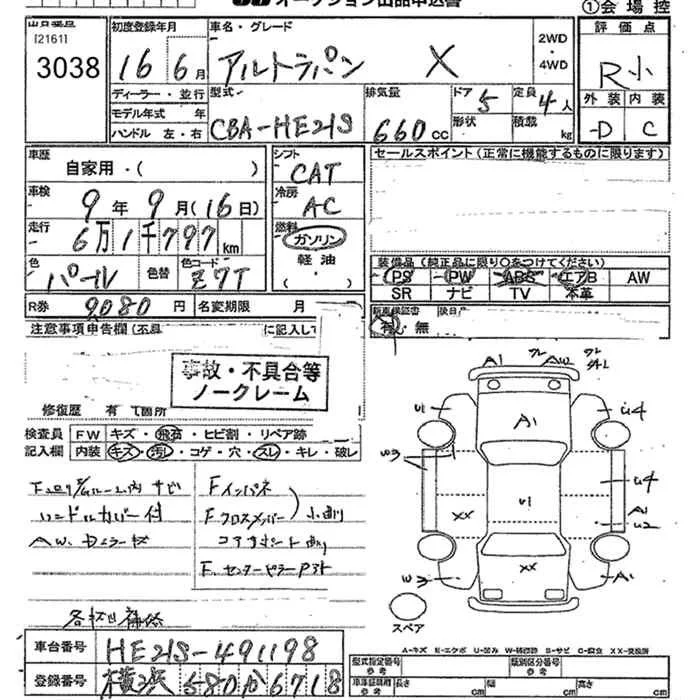 オークション出品申込書
①会場控
[2161]
3038
初度登録年月
16 6月
車名・グレード
アルトラパン X
2WD
・
4WD
評価点
R小
外装 内装
-D C
ディーラー・並行
モデル年式 年
ハンドル 左・右
型式
CBA-HE21S
排気量
660cc
ドア 5
形状
定員 4人
積載 kg
車歴
自家用・( )
シフト
CAT
セールスポイント(正常に機能するものに限ります)
車検
9年9月(16日)
冷房
AC
走行
6万1千797km
燃料
ガソリン
・
軽油
・
( )
色
パール
色替
色コード
Z7T
装備品(純正品に限り○をつけてください)
PS PW ABS エアB AW
SR ナビ TV 本革
R券 9080円 名変期限 月
新車保証書
有・無
注意事項申告欄(不具
に記入して
事故・不具合等
ノークレーム
修復歴 有 箇所
検査員
記入欄
FW キズ・飛石・ヒビ割・リペア跡
内装 キズ・汚レ・コゲ・穴・スレ・キレ・破レ
サビ
ハンドルカバー付
Fインパネ
Fクロスメンバー
コアサポート曲
F.センターピラー
A1
AW
U1
A1
U4
W3
U4
U1
A1
U2
XX
XX
W3
A1
スペア
A-キズ E-エクボ U-凹み W-補修跡 S-サビ C-腐食 XX-交換済
車台番号
HE21S-491198
登録番号
580 か 6718
型式指定番号
参考
類別区分番号
参考
車車庫証明
参考
長さ cm
幅 cm
高さ cm